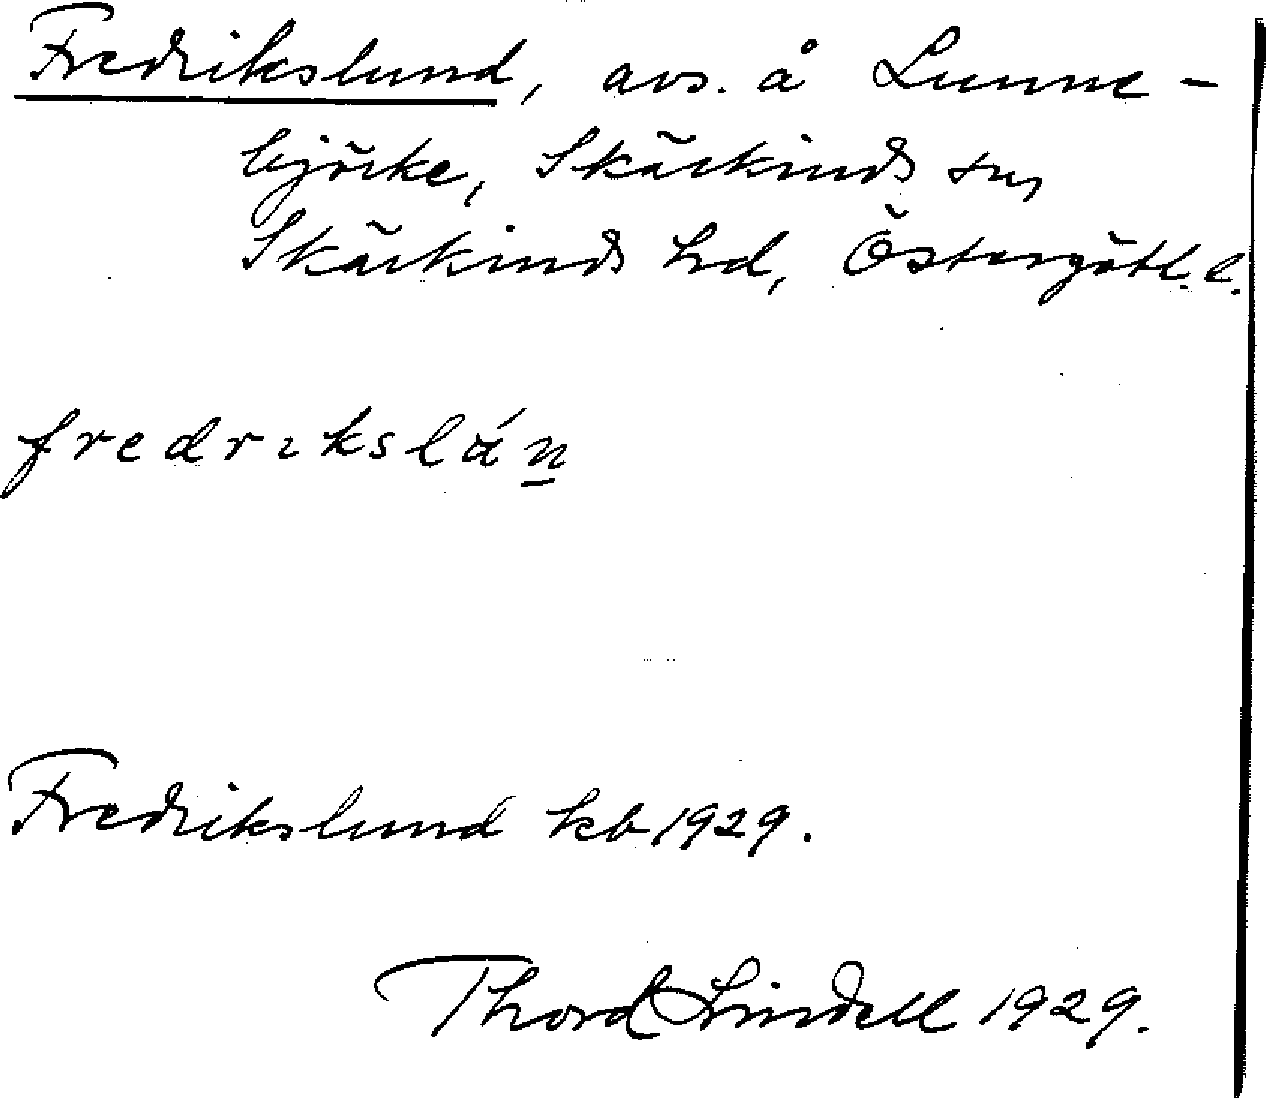 Fredrikslund, avs. å Lunne-
björke, Skärkinds sn,
Skärkinds hd, Östergötl. l.
fredrıkslán
Fredrikslund kb 1929.
Thord Lindell 1929.